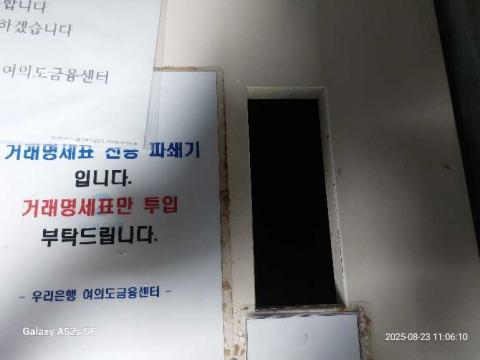 합니다
하겠습니다
여의도금융센터
거래명세표 전용 파쇄기
입니다.
거래명세표만 투입
부탁드립니다.
- 우리은행 여의도금융센터 -
Galaxy A52s 5G
2025-08-23 11:06:10